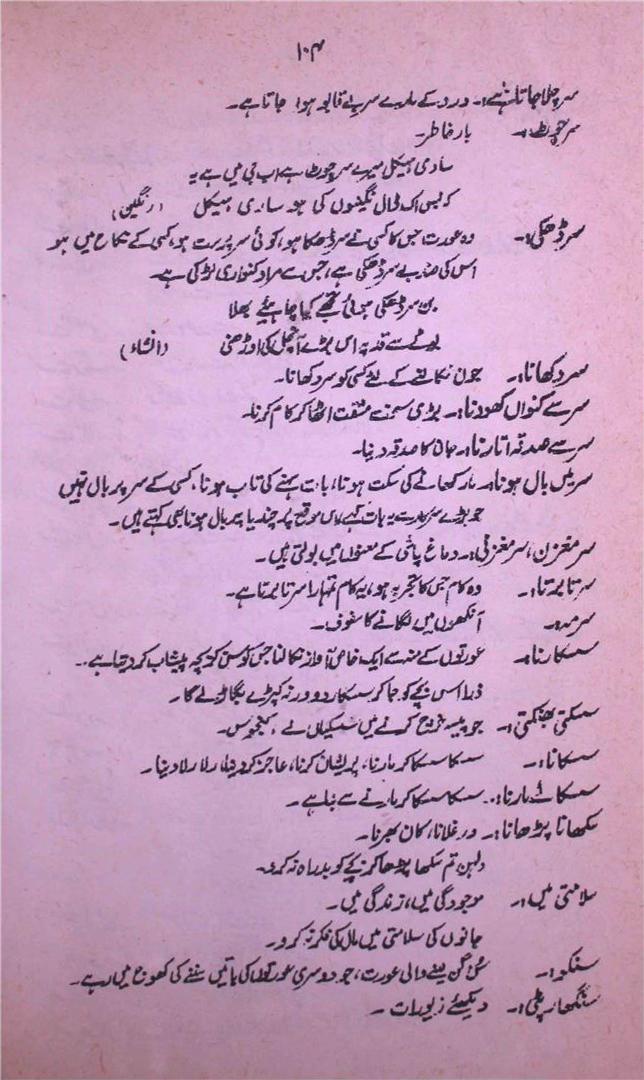 ۱۰۴
سر چلا جاتا ہے:۔ درد کے مارے سر بے قابو ہوا جاتا ہے۔
سر چوٹ:۔ بار خاطر۔
ساری ہیکل میرے سر چوٹ ہے اب جی میں ہے یہ
کہ بس اک ڈال نگینوں کی ہو ساری ہیکل (رنگین)
سر ڈھکی:۔ وہ عورت جس کا کسی نے سر ڈھکا ہو، کوئی سرپرست ہو، کسی کے نکاح میں ہو
اس کی ضد بے سر ڈھکی ہے، جس سے مراد کنواری لڑکی ہے۔
بن سر ڈھکی ہوئی تجھے کیا چاہیئے بھلا
بوٹے سے قد پہ اس بڑے آنچل کی اوڑھنی (انشاء)
سر دکھانا:۔ جوں نکالنے کے لئے کسی کو سر دکھانا۔
سر سے کنواں کھودنا:۔ بڑی سخت مشقت اٹھا کر کام کرنا۔
سر سے صدقہ اتارنا:۔ جان کا صدقہ دینا۔
سر میں بال ہونا:۔ مار کھانے کی سکت ہونا، بات سہنے کی تاب ہونا، کسی کے سر پر بال نہیں
جو بڑے سرکار سے یہ بات کہے اس موقع پر چندیا پر بال ہونا بھی کہتے ہیں۔
سر مغزن، سر مغزنی:۔ دماغ پاشی کے معنوں میں بولتی ہیں۔
سر تا برتا:۔ وہ کام جس کا تجربہ ہو، یہ کام تمہارا سر تا برتا ہے۔
سرمہ:۔ آنکھوں میں لگانے کا سفوف۔
سسکارنا:۔ عورتوں کے منہ سے ایک خاص آواز نکالنا جس کو سن کر بچہ پیشاب کر دیتا ہے۔
ذرا اس بچے کو جا کر سسکار دو ورنہ کپڑے بگاڑ لے گا۔
سسکتی بھنکتی:۔ جو پیسہ خرچ کرنے میں سسکیاں لے، کنجوس۔
سسکانا:۔ سسکا سسکا کر مارنا، پریشان کرنا، عاجز کر دینا، رلا رلا دینا۔
سسکائے مارنا:۔ سسکا سسکا کر مارنے سے بنا ہے۔
سکھانا پڑھانا:۔ ورغلانا، کان بھرنا۔
دلہن تم سکھا پڑھا کر بچے کو بدراہ نہ کرو۔
سلامتی میں:۔ موجودگی میں، زندگی میں۔
جانوں کی سلامتی میں مال کی فکر نہ کرو۔
سنکو:۔ سن گن لینے والی عورت، جو دوسری عورتوں کی باتیں سننے کی کھوج میں رہے۔
سنگھار پٹی:۔ دیکھئے زیورات۔